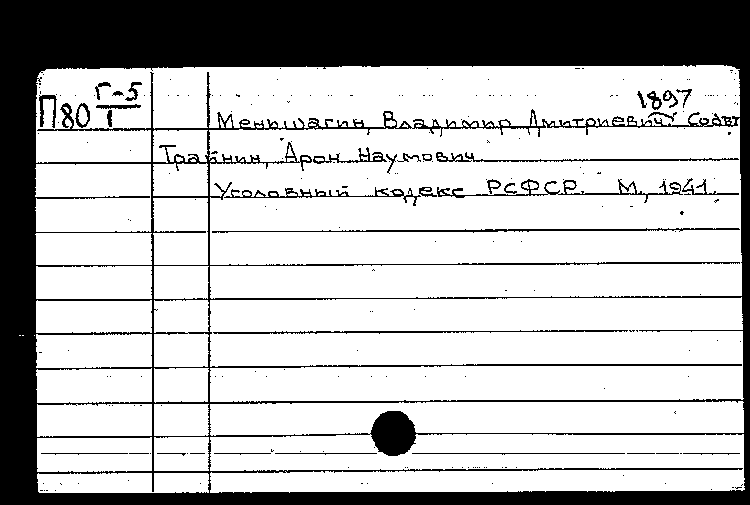 П80 Г-5/1
1897
Меньшагин, Владимир Дмитриевич Соавт
Трайнин, Арон Наумович.
Уголовный кодекс РСФСР. М., 1941.